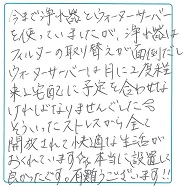 今まで浄水器とウォーターサーバー
を使っていましたが、浄水器は
フィルターの取り替えが面倒だし
ウォーターサーバーは月に2度程
来る宅配に予定を合わせな
ければなりませんでした。
そういったストレスから全て
開放されて快適な生活が
おくれています。本当に設置して
良かったです。有難うございます!!